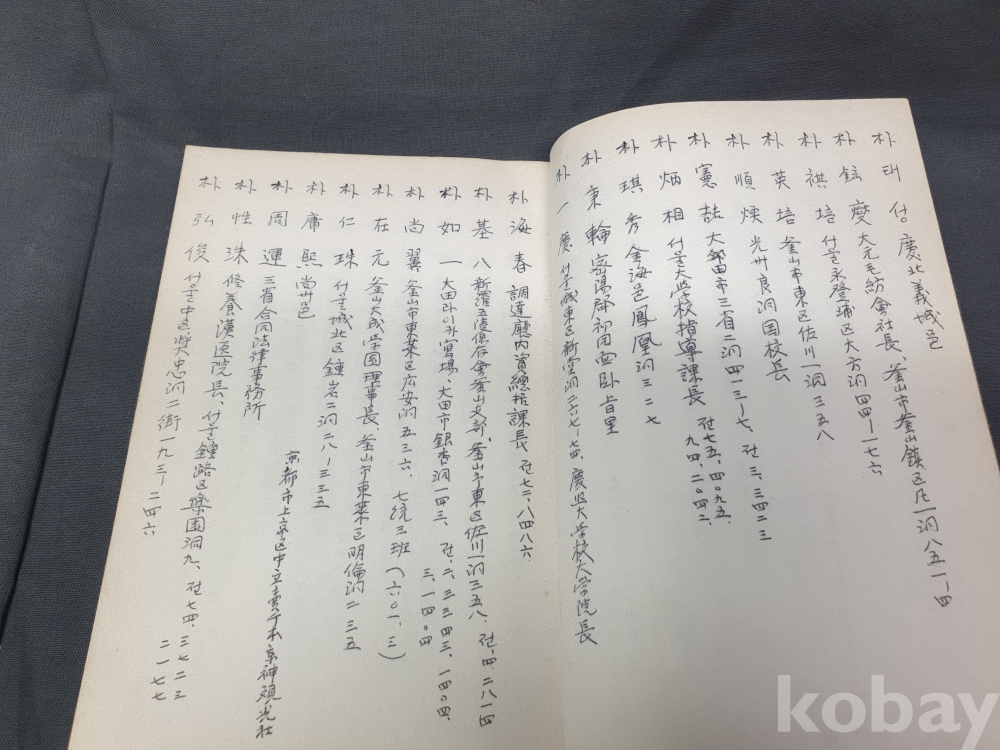 朴 태 성 慶北義城邑
朴 鉉 燮 大元毛紡會社長、釜山市釜山鎮区凡一洞八五一-四
朴 祺 培 서울永登浦区大方洞四四-一七六
朴 英 培 釜山市東区佐川一洞三五八
朴 順 煐 光州良洞国校長
朴 憲 喆 大邱田市三省二洞四一三-七、전三、三四二三
朴 炳 相 서울大学校指導課長 전七五、四〇九五、九四、二〇四二
朴 琪 秀 金海邑鳳凰洞三二七
朴 東 輪 密陽郡初同面臥旨里
朴 一 慶 서울城東区新堂洞二六七-七四、慶熙大学校大学院長
朴 海 春 調達廳内資總括課長 전七二、八四八六
朴 基 八 新羅五陵保存會釜山支部、釜山市東区佐川一洞三五八、전、四、二八一四
朴 如 一 大田 宴場、大田市銀杏洞一四三、전、二、三三四三、一四〇四
三、一四〇四
朴 尚 翼 釜山市東萊区広安洞五三六、七統三班(六〇一、三)
朴 在 元 釜山大成学園理事長、釜山市東萊区明倫洞二三五
朴 仁 珠 서울城北区鍾岩二洞二八-三三五
朴 庸 熙 尚州邑
朴 周 運 三省合同法律事務所
京都市上京区中立賣 京神観光社
朴 性 洙 修養漢医院長、서울鍾路区樂園洞九、전七四、三七二三
二一七七
朴 弘 俊 서울中区奬忠洞二街一九三-二四六
kobay